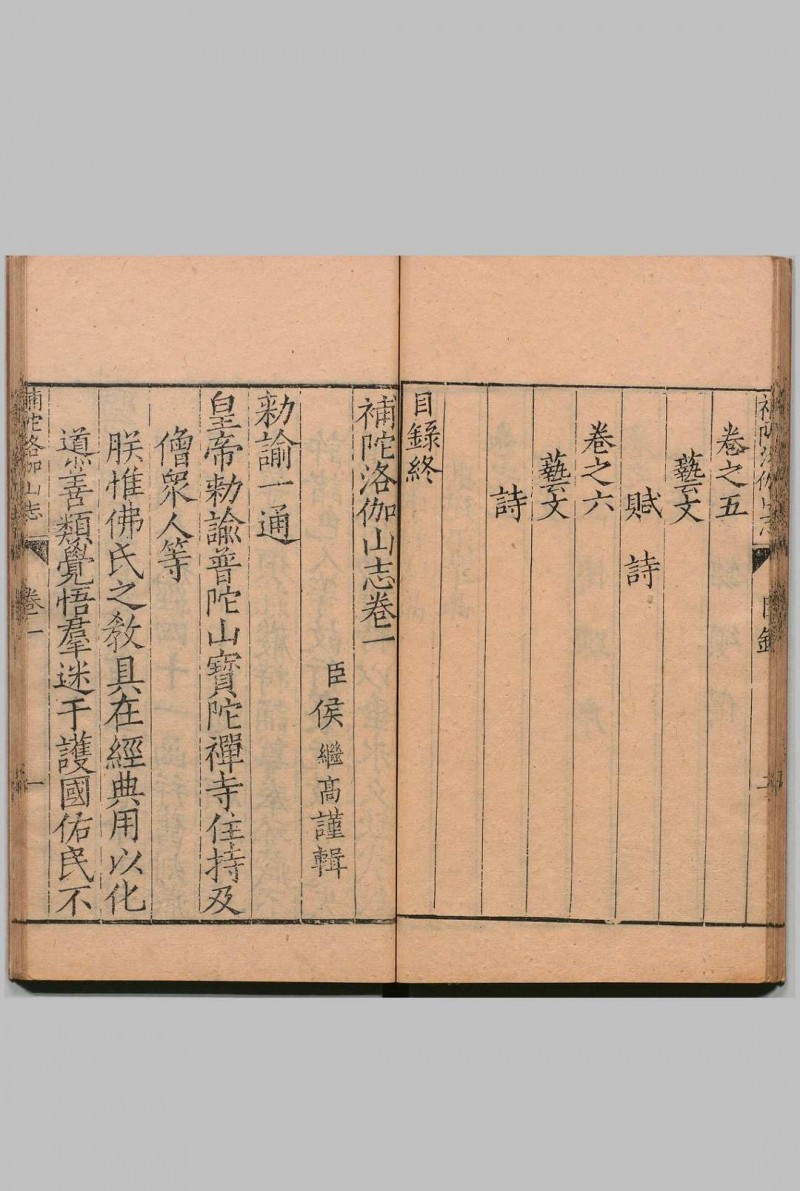 補陀洛伽山志
目錄
二
卷之五
藝文
賦 詩
卷之六
藝文
詩
目錄終
補陀洛伽山志卷一
臣侯繼高謹輯
勑諭一通
皇帝勑諭普陀山寶陀禪寺住持及
僧衆人等
朕惟佛氏之教具在經典用以化
導善類覺悟羣迷于護國佑民不
補陀洛伽山志
卷一
一